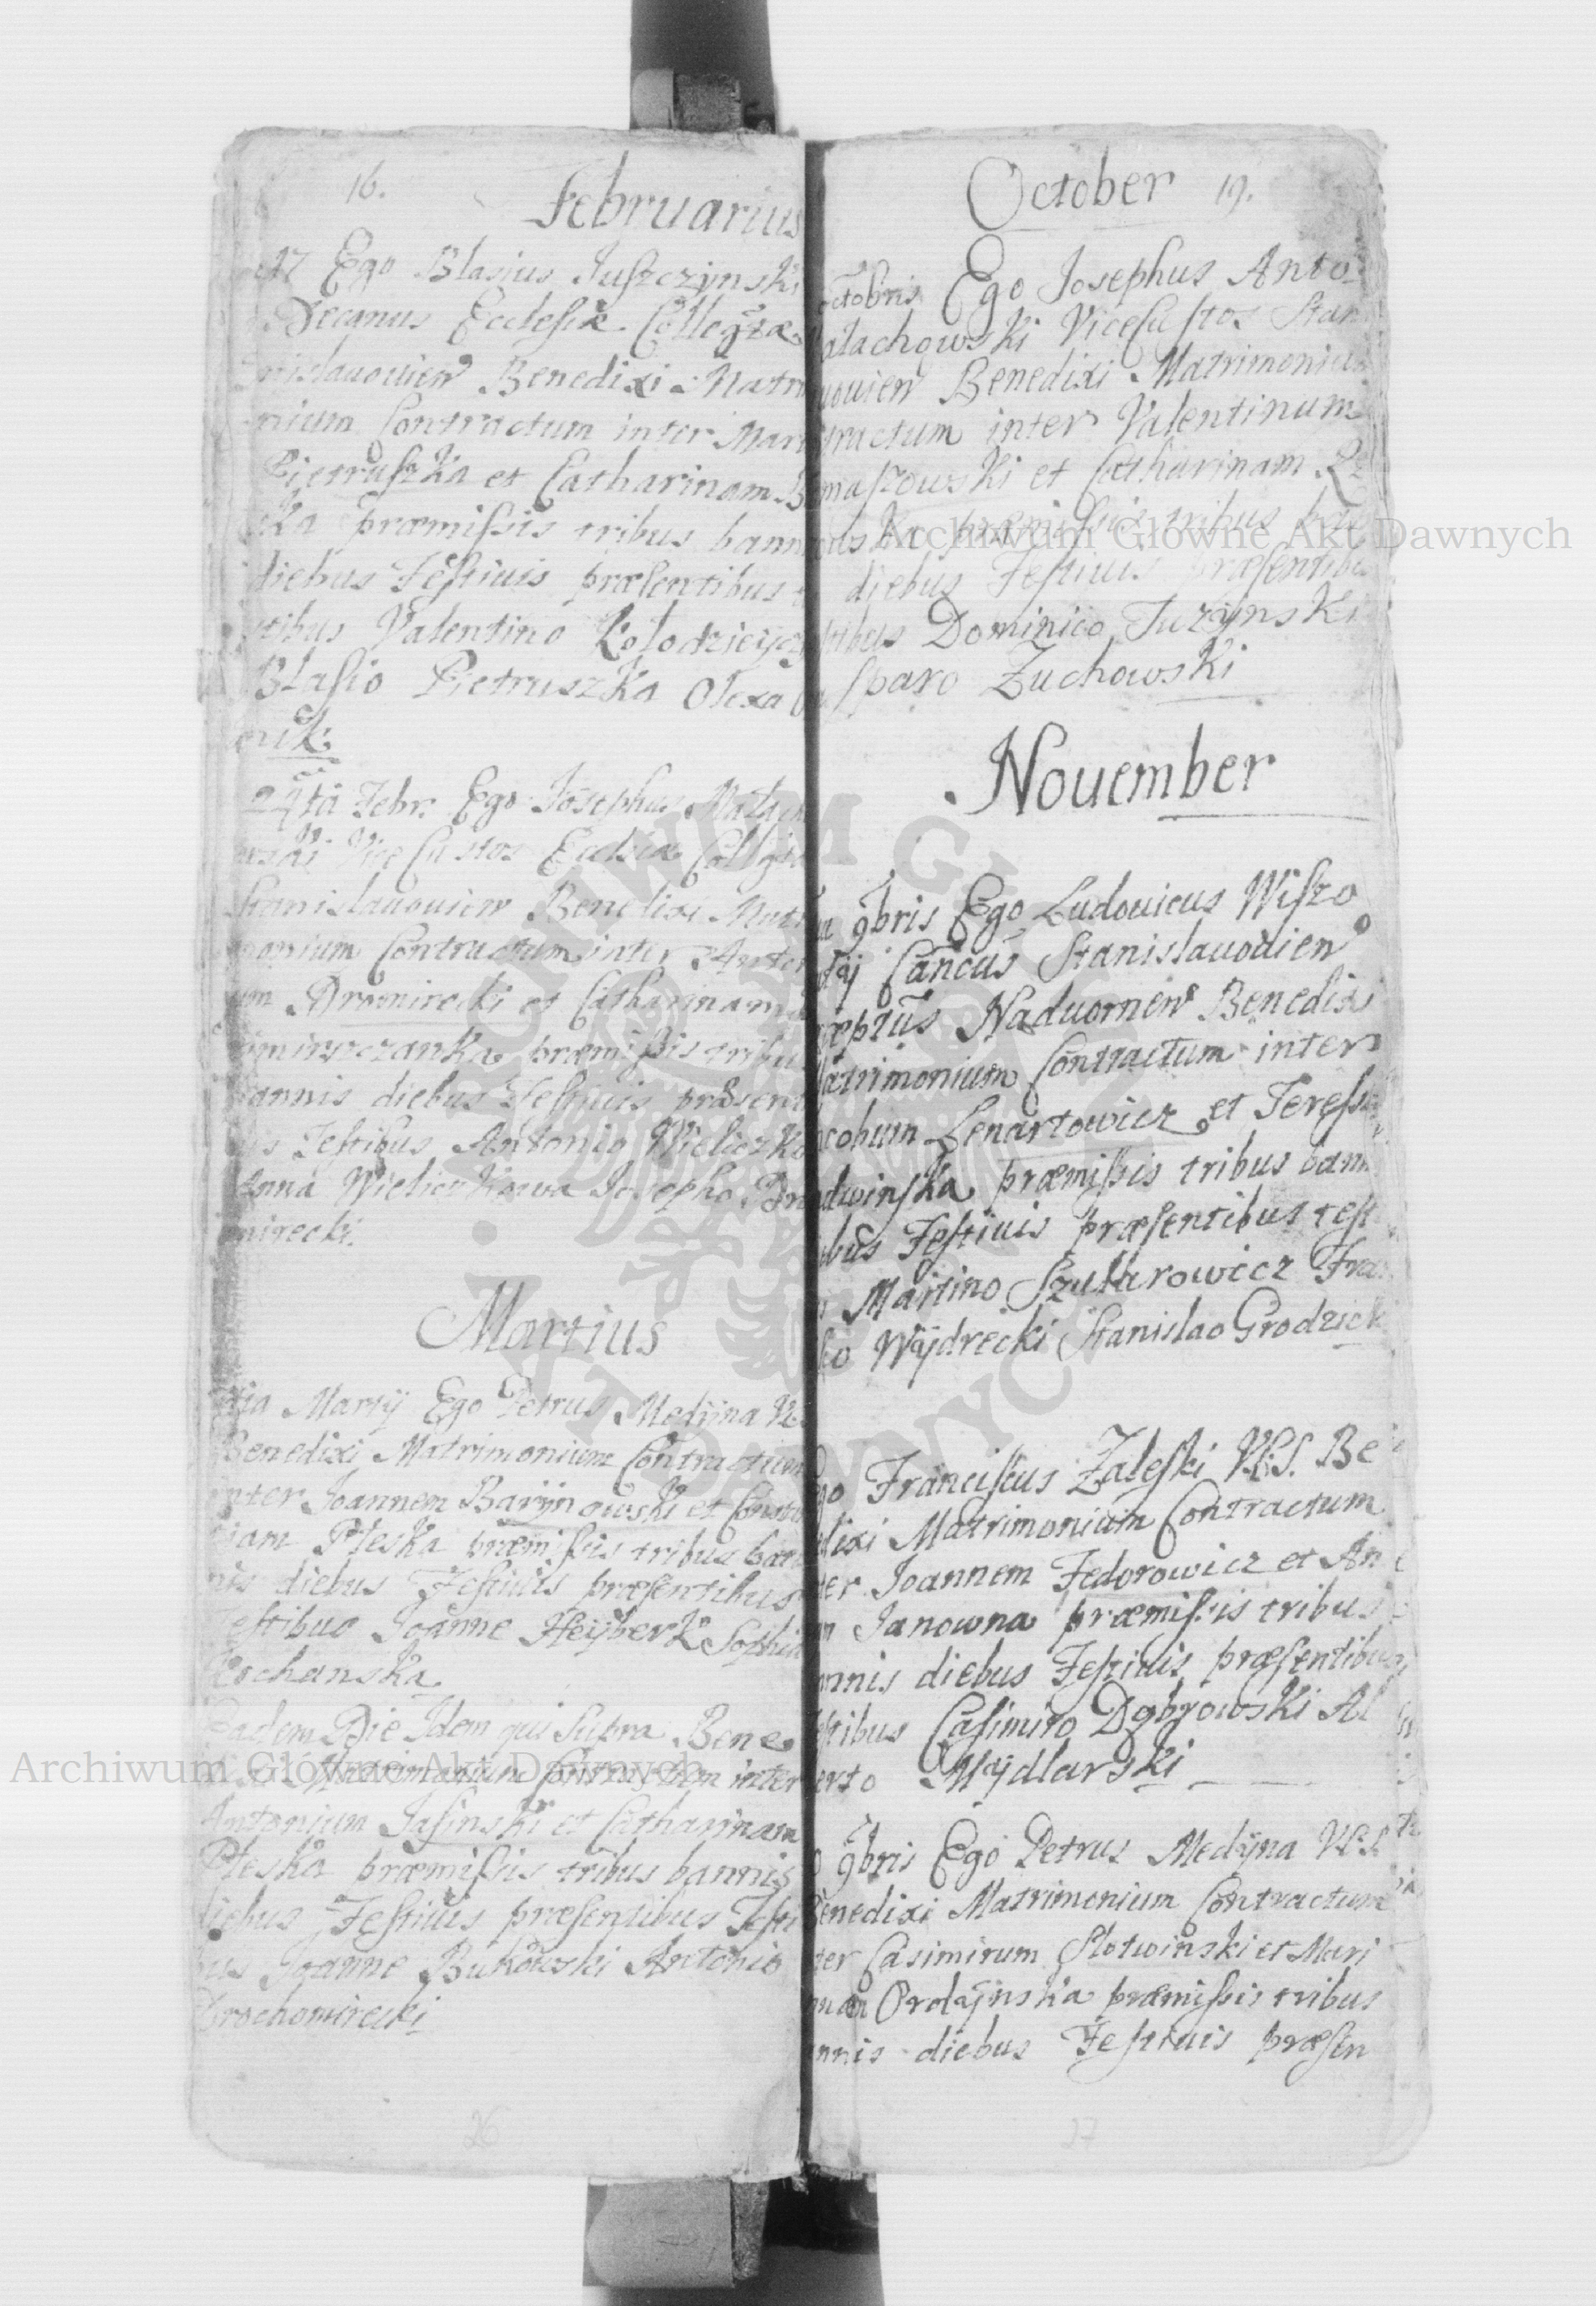 16.
Februarius
17 Ego Blasius Juszczynski
Decanus Ecclesiæ Collegtæ
nislauowien Benedixi Matri
nium Contractum inter Mar
Pietruszka et Catharinam
ka præmissis tribus bann
diebus Festiuis præsentibus
tibus Valentino Kolodzieycz
Blasio Pietruszka Olexa
24ta Febr: Ego Josephus Malach
wski Vice Custos Ecclsiæ Collgta
Stanislauouien Benedixi Matri
monium Contractum inter Anton
um Dromirecki et Catharinam
præmissis tribu
bannis diebus Festiuis præsent
Testibus Antonio Wieliczko
Anna Wieliczkowa Josepho Dro
mirecki.
Martius
Martij Ego Petrus Medÿna
Benedixi Matrimonium Contractum
inter Joannem Barÿnowski et Constan
tiam Pleska præmissis tribus ban
nis diebus Festiuis præsentibus
Testibus Joanne Heÿberk Sophia
Kochanska
Eadem Die Idem qui Supra Bene
dixi Matrimonium Contractum inter
Antonium Jasinski et Catharinam
Pleska præmissis tribus bannis
diebus Festiuis præsentibus Testi
bus Joanne Bukowski Antonio
Drochomirecki
26
October 19.
octobris Ego Josephus Anto
alachowski ViceCustos Stan
uouien Benedixi Matrimonium
tractum inter Valentinum
maszowski et Catharinam
ska præmissis tribus
diebus Festiuis præsentibu
stibus Dominico Tuzÿnski
sparo Zuchowski
Nouember
9bris Ego Ludouicus Wiszo
Cancus Stanislauodien
æptus Naduornen Benedixi
atrimonium Contractum inter
acobum Lenartowicz et Teressa
dwinska præmissis tribus bann
ebus Festiuis præsentibus test
Martino Szutkrowicz Fra
Wÿdrecki Stanislao Grodzick
go Franciscus Zaleski V.C.S. Be
dixi Matrimonium Contractum
ter Joannem Fedorowicz et An
m Janowna præmissis tribus
annis diebus Festiuis præsentibus
stibus Casimiro Dąbrowski Al
erto Mÿdlarski
9bris Ego Petrus Medÿna V.C.S.
Benedixi Matrimonium Contractum
ter Casimirum Slotwinski et Mari
Ordÿnska præmissis tribus
nnis diebus Festiuis præsen
27
Archiwum Główne Akt Dawnych
Archiwum Główne Akt Dawnych
ARCHIWUM GŁÓWNE AKT DAWNYCH